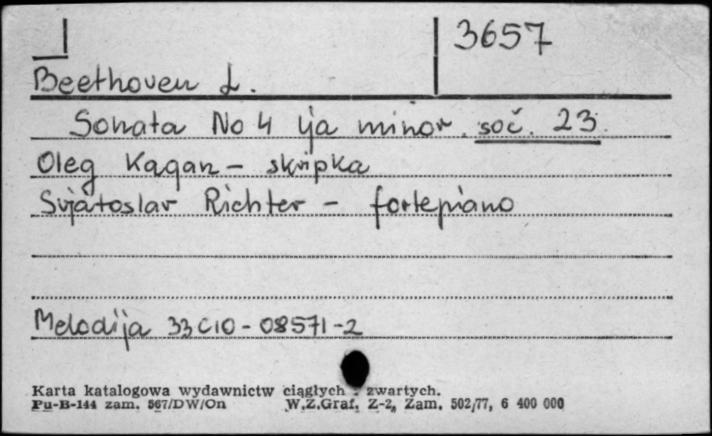 3657
Beethoven L.
Sonata No 4 lja minor. soč. 23.
Oleg Kagan - skripka
Svjatoslav Richter - fortepiano
Melodija 33C10-08571-2
Karta katalogowa wydawnictw ciągłych i zwartych.
Pu-B-144 zam. 567/DW/On W.Z.Graf. Z-2, Zam. 502/77, 6 400 000